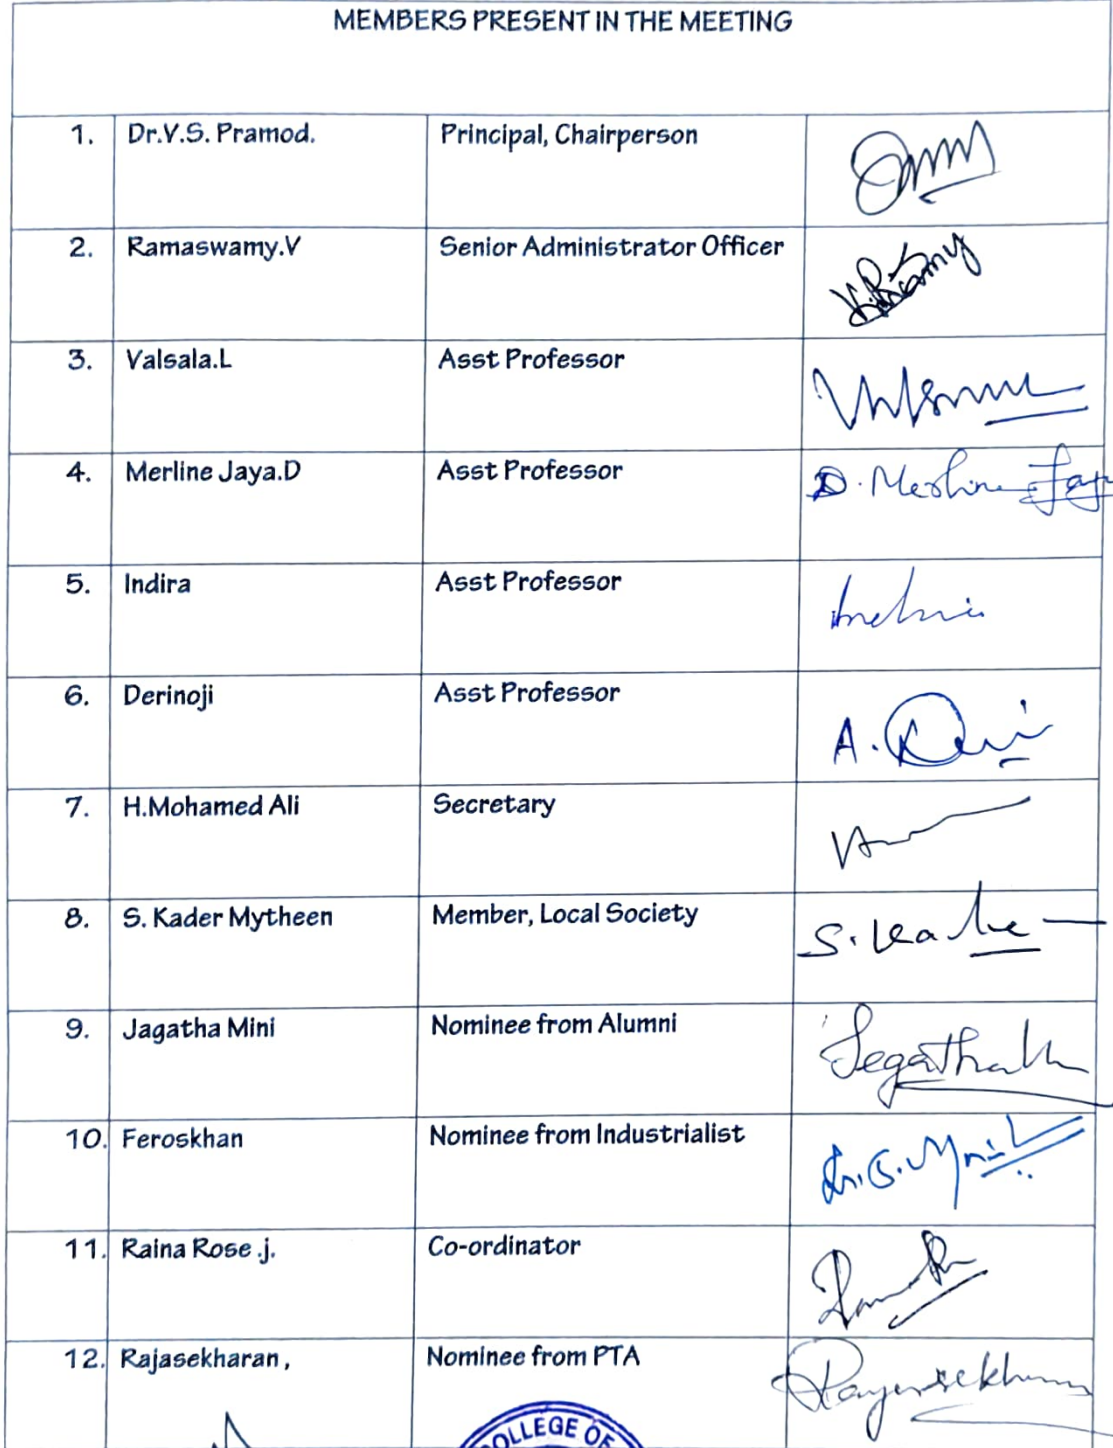 MEMBERS PRESENT IN THE MEETING
1. Dr.V.S. Pramod. Principal, Chairperson
2. Ramaswamy.V Senior Administrator Officer
3. Valsala.L Asst Professor
4. Merline Jaya.D Asst Professor D. Merline Jay
5. Indira Asst Professor Indira
6. Derinoji Asst Professor
7. H.Mohamed Ali Secretary
8. S. Kader Mytheen Member, Local Society
9. Jagatha Mini Nominee from Alumni
10. Feroskhan Nominee from Industrialist
11. Raina Rose .j. Co-ordinator
12. Rajasekharan , Nominee from PTA
COLLEGE OF